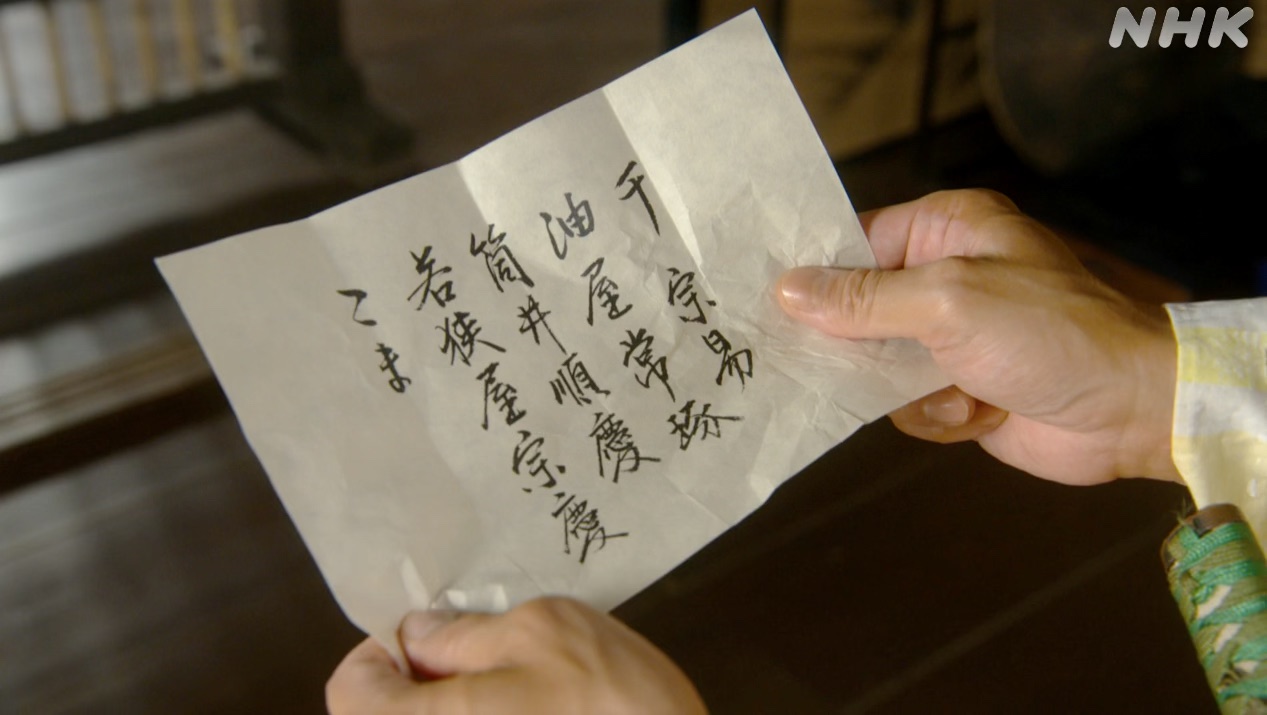 千宗易
油屋常琢
筒井順慶
若狭屋宗慶
こま
NHK